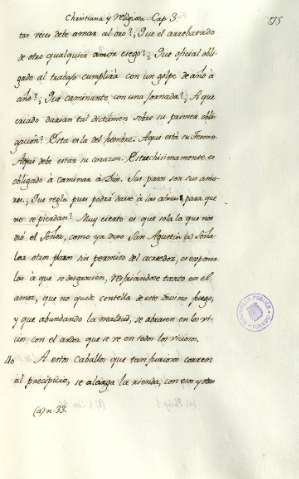 Christiana y religiosa Cap. 3.
175
tas veces debe amar al año? ¿Que el arrebatado
de otro qualquier amor ciego? ¿Que oficial obli-
gado al trabajo cumplirá con un golpe de año à
año? ¿Que caminante con una jornada? A que
estado darian tal dictamen sobre su primera obli-
gación? Esta es la del hombre. Aqui está su Tesoro.
Aqui debe estar su corazon. Estrechisimamente es
obligado à caminar à Dios. Sus pasos son sus amo-
res. Que regla pues podrá darse à las almas para que
no se pierdan? Muy cierto es que sola la que nos
dió el Señor, como ya dixo San Agustin (a) Seña-
lar otro plazo sin permiso del acreedor, es expo-
nerla à que se desgracien, resfriandose tanto en el
amor, que no quede centella de este divino fuego,
y que abundando la maldad, se abrasen en la
con el ardor que se ve en todos los viciosos.
110 A estos Caballos que tan furiosos corren
al precipicio, se alarga la rienda; con eso y
(a) n. 33.